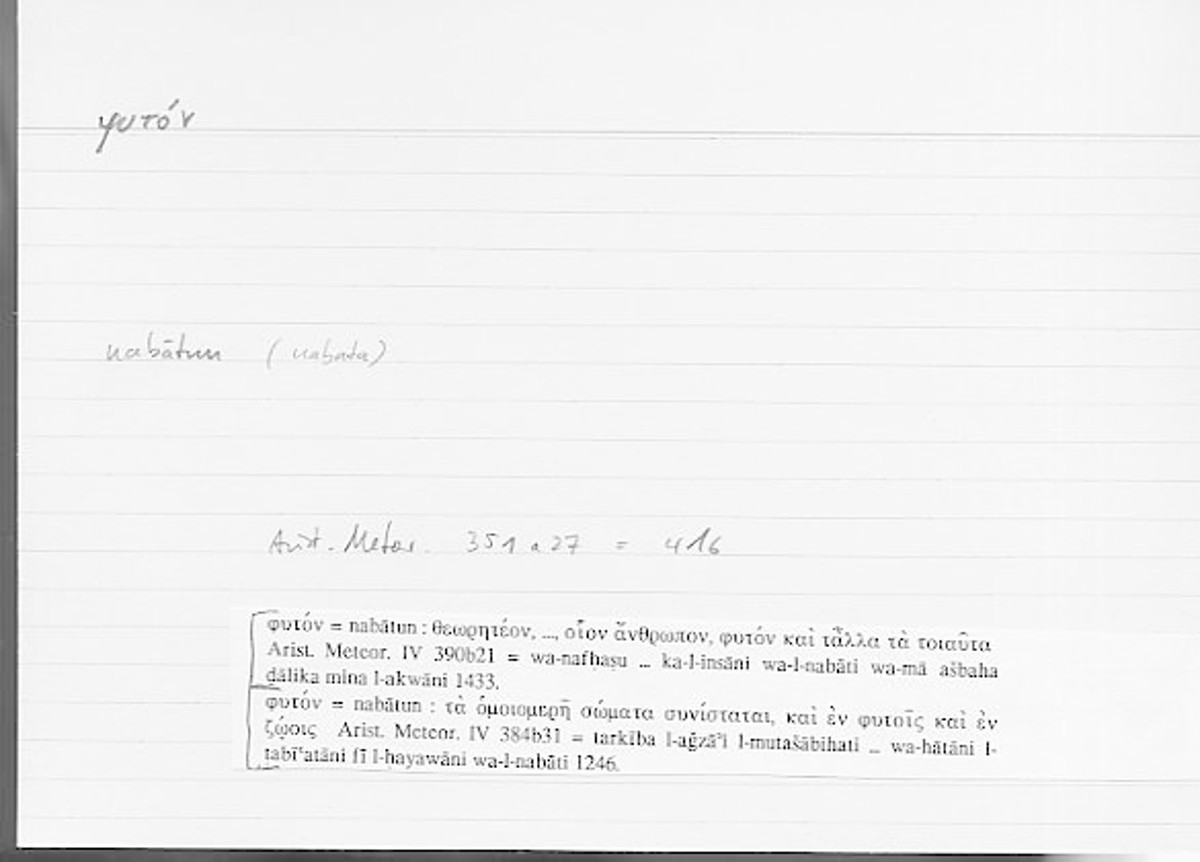 φυτόν
nabātun (nabata)
Arist. Meteor. 351 a 27 = 416
φυτόν = nabātun : θεωρητέον, ..., οἷον ἄνθρωπον, φυτόν καὶ τἆλλα τὰ τοιαῦτα
Arist. Meteor. IV 390b21 = wa-nafḥaṣu ... ka-l-insāni wa-l-nabāti wa-mā ašbaha
ḏālika mina l-akwāni 1433.
φυτόν = nabātun : τὰ ὁμοιομερῆ σώματα συνίσταται, καὶ ἐν φυτοῖς καὶ ἐν
ζῴοις Arist. Meteor. IV 384b31 = tarkība l-aǧzāʾi l-mutašābihati ... wa-hātāni l-
ṭabīʿatāni fī l-ḥayawāni wa-l-nabāti 1246.